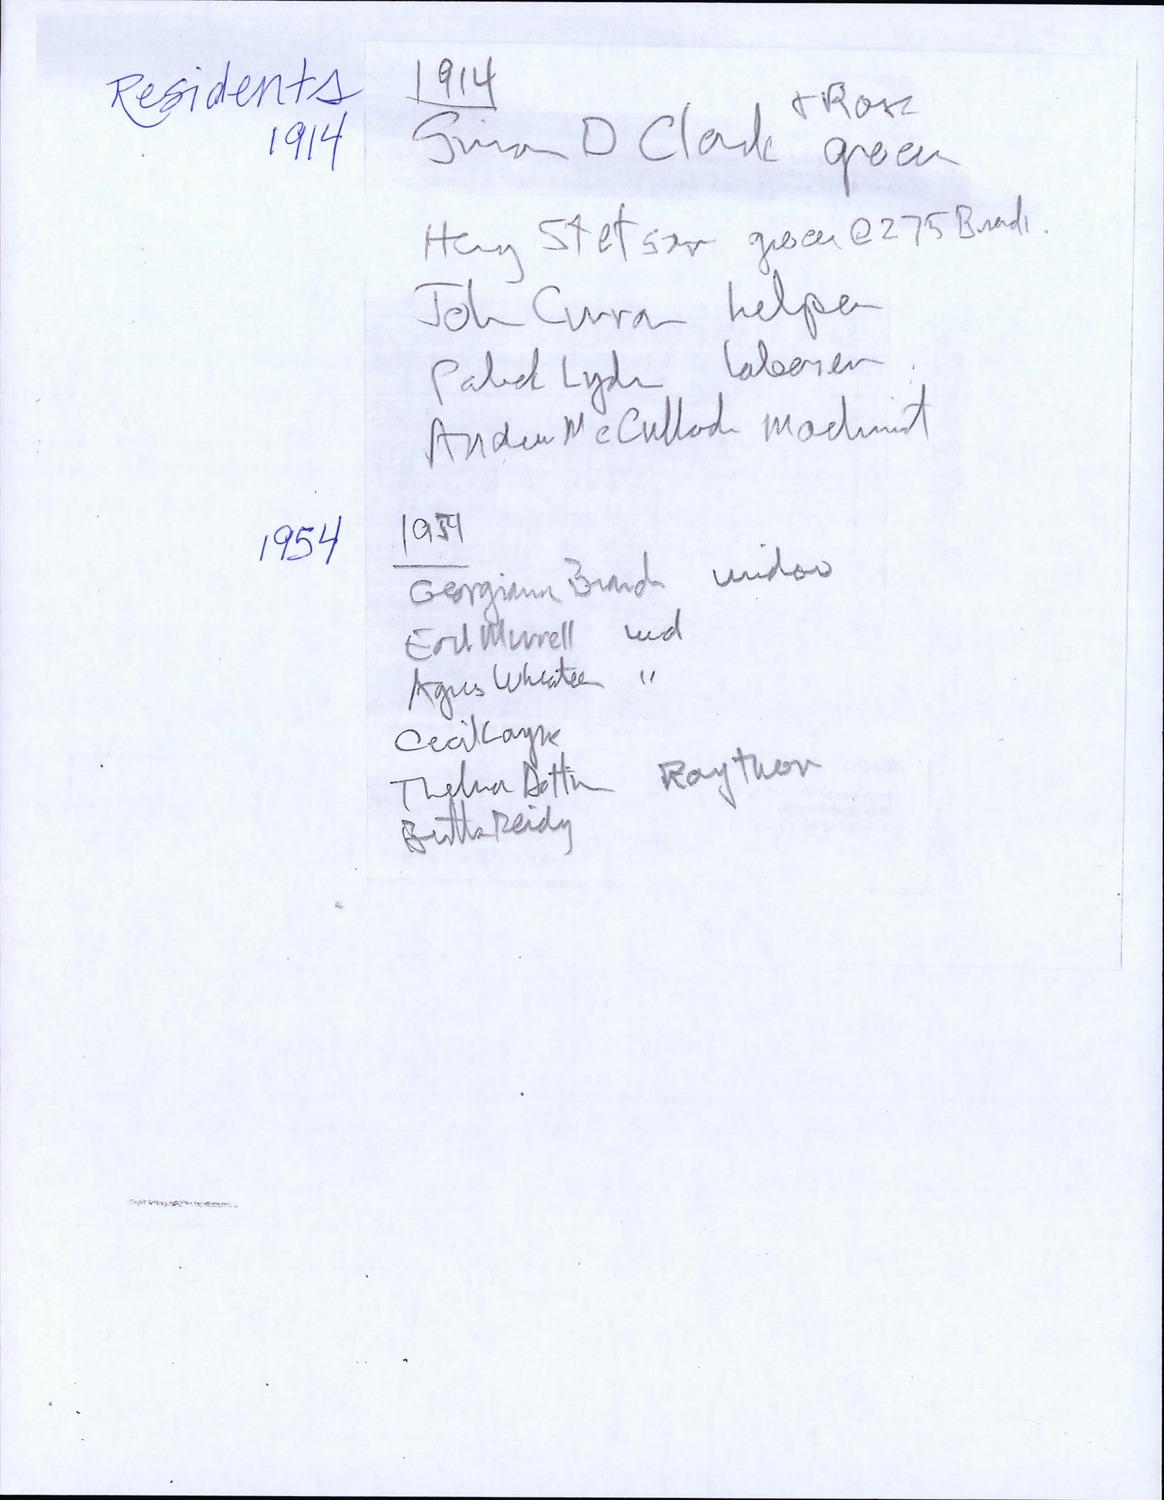 Residents
1914
1914
Simon D Clark & Rose grocer
Henry Stetson grocer @ 275 Broad.
John Curran helper
Patrick Lyden laborer
Andrew McCulloch machinist
1954
1954
Georgianna Branch widow
Earl Murrell wid
Agnes Wheaten "
Cecil Layne
Thelma Dottin Raytheon
Reidy